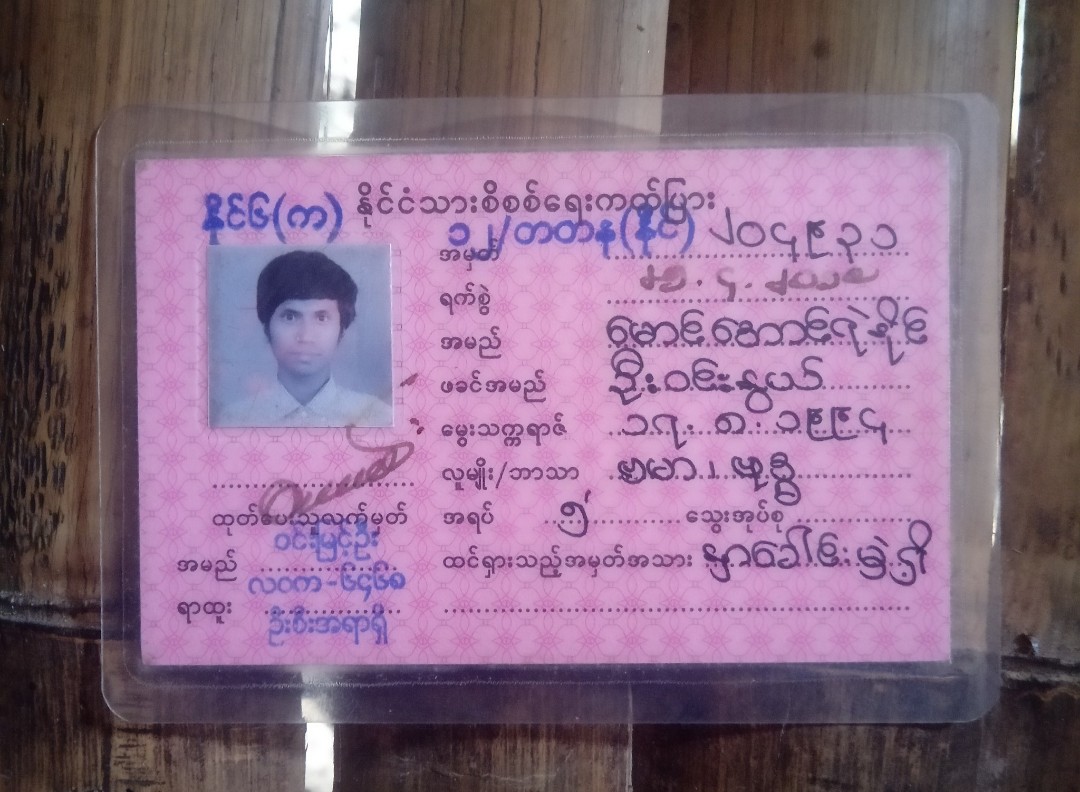 နိုင်၆(က) နိုင်ငံသားစိစစ်ရေးကတ်ပြား
အမှတ် ၁၂/တတန(နိုင်) ၂၀၄၉၃၁
ရက်စွဲ
အမည် မောင်အောင်ရဲနိုင်
ဖခင်အမည် ဦးဝင်းနွယ်
မွေးသက္ကရာဇ် ၁၇.၈.၁၉၉၄
လူမျိုး/ဘာသာ ဗမာ၊ ဗုဒ္ဓ
အရပ် ၅' သွေးအုပ်စု
ထင်ရှားသည့်အမှတ်အသား နှာခေါင်းမှဲ့ရှိ
ထုတ်ပေးသူလက်မှတ်
အမည် ဝင်းမြင့်ဦး
လဝက-၆၄၆၈
ရာထူး ဦးစီးအရာရှိ